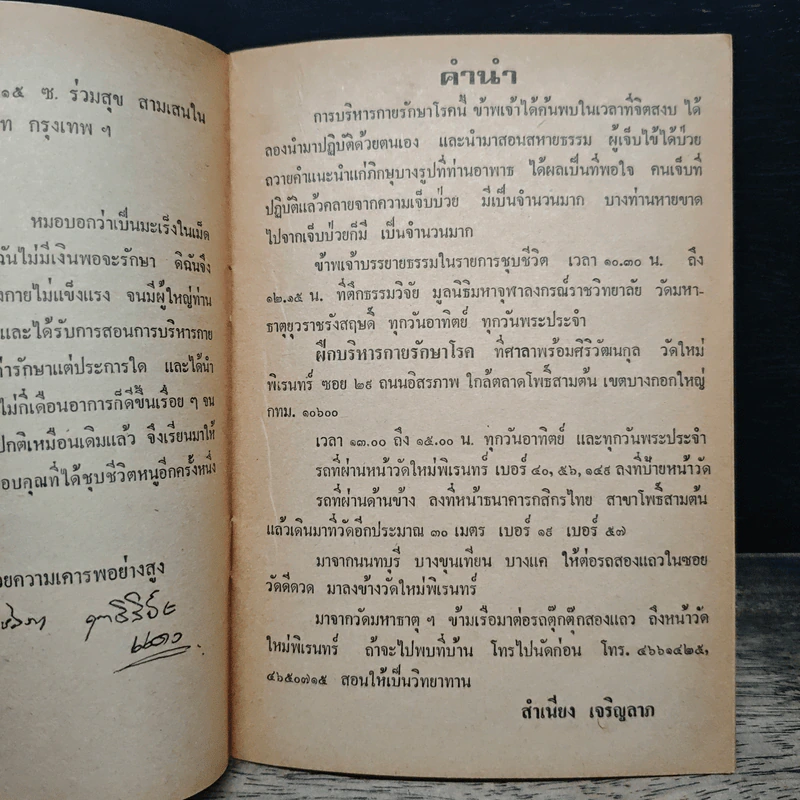 ๑๕ ซ. ร่วมสุข สามเสนใน
ท กรุงเทพ ฯ
หมอบอกว่าเป็นมะเร็งในเม็ด
ฉันไม่มีเงินพอจะรักษา ดิฉันจึง
งกายไม่แข็งแรง จนมีผู้ใหญ่ท่าน
และได้รับการสอนการบริหารกาย
ค่ารักษาแต่ประการใด และได้นำ
ไม่กี่เดือนอาการก็ดีขึ้นเรื่อย ๆ จน
ปกติเหมือนเดิมแล้ว จึงเรียนมาให้
อบคุณที่ได้ชุบชีวิตหนูอีกครั้งหนึ่ง
วยความเคารพอย่างสูง
คำนำ
การบริหารกายรักษาโรคนี้ ข้าพเจ้าได้ค้นพบในเวลาที่จิตสงบ ได้
ลองนำมาปฏิบัติด้วยตนเอง และนำมาสอนสหายธรรม ผู้เจ็บไข้ได้ป่วย
ถวายคำแนะนำแก่ภิกษุบางรูปที่ท่านอาพาธ ได้ผลเป็นที่พอใจ คนเจ็บที่
ปฏิบัติแล้วคลายจากความเจ็บป่วย มีเป็นจำนวนมาก บางท่านหายขาด
ไปจากเจ็บป่วยก็มี เป็นจำนวนมาก
ข้าพเจ้าบรรยายธรรมในรายการชุบชีวิต เวลา ๑๐.๓๐ น. ถึง
๑๒.๑๕ น. ที่ตึกธรรมวิจัย มูลนิธิมหาจุฬาลงกรณ์ราชวิทยาลัย วัดมหา-
ธาตุยุวราชรังสฤษดิ์ ทุกวันอาทิตย์ ทุกวันพระประจำ
ฝึกบริหารกายรักษาโรค ที่ศาลาพร้อมศิริวัฒนกุล วัดใหม่
พิเรนทร์ ซอย ๒๙ ถนนอิสรภาพ ใกล้ตลาดโพธิ์สามต้น เขตบางกอกใหญ่
กทม. ๑๐๖๐๐
เวลา ๑๓.๐๐ ถึง ๑๕.๐๐ น. ทุกวันอาทิตย์ และทุกวันพระประจำ
รถที่ผ่านหน้าวัดใหม่พิเรนทร์ เบอร์ ๔๐, ๕๖, ๑๔๙ ลงที่ป้ายหน้าวัด
รถที่ผ่านด้านข้าง ลงที่หน้าธนาคารกสิกรไทย สาขาโพธิ์สามต้น
แล้วเดินมาที่วัดอีกประมาณ ๓๐ เมตร เบอร์ ๑๙ เบอร์ ๕๗
มาจากนนทบุรี บางขุนเทียน บางแค ให้ต่อรถสองแถวในซอย
วัดดีดวด มาลงข้างวัดใหม่พิเรนทร์
มาจากวัดมหาธาตุ ฯ ข้ามเรือมาต่อรถตุ๊กตุ๊กสองแถว ถึงหน้าวัด
ใหม่พิเรนทร์ ถ้าจะไปพบที่บ้าน โทรไปนัดก่อน โทร. ๔๖๖๑๔๒๕,
๔๖๕๐๗๑๕ สอนให้เป็นวิทยาทาน
สำเนียง เจริญลาภ